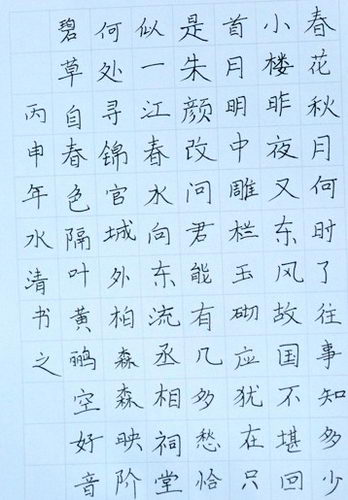 春花秋月何时了往事知多少
小楼昨夜又东风故国不堪回
首月明中雕栏玉砌应犹在只
是朱颜改问君能有几多愁恰
似一江春水向东流丞相祠堂
何处寻锦官城外柏森森映阶
碧草自春色隔叶黄鹂空好音
丙申年水清书之